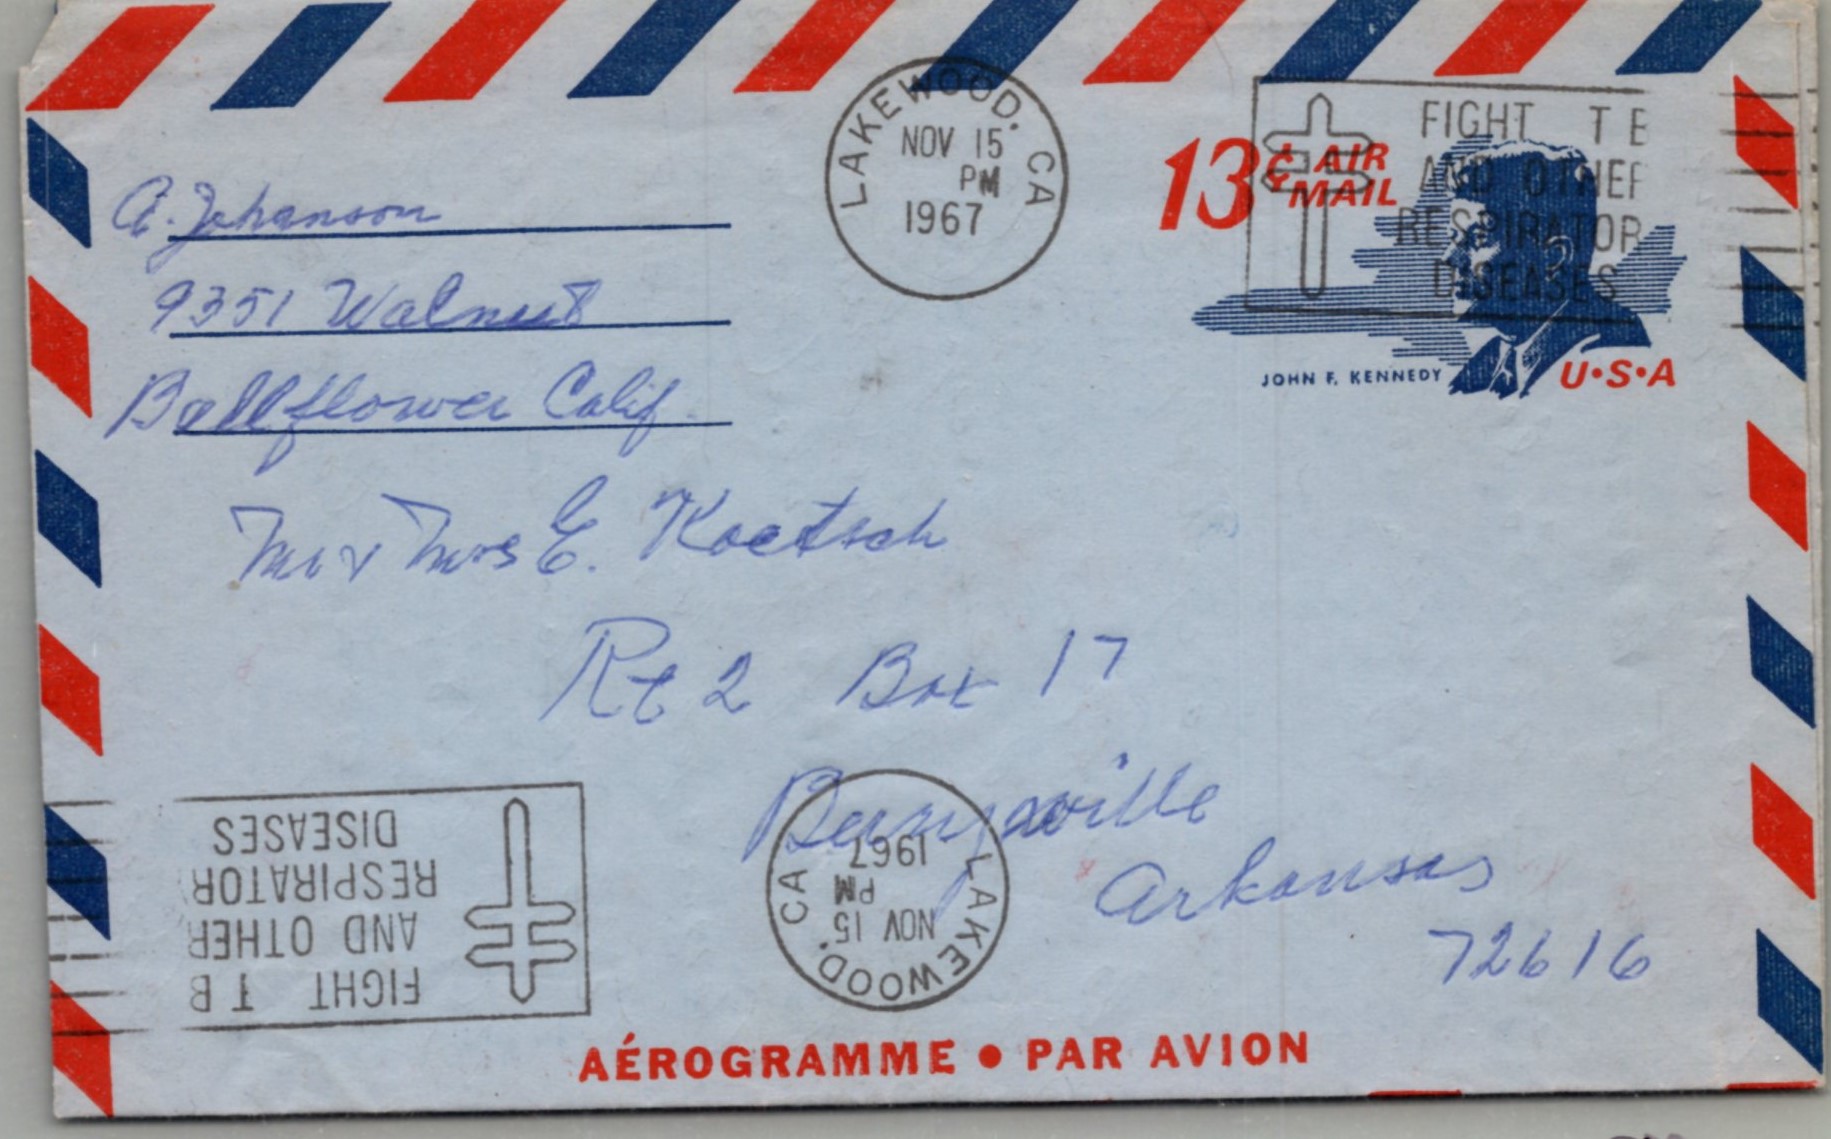 LAKEWOOD. CA
NOV 15
PM
1967
13¢ AIR
MAIL
FIGHT TB
AND OTHER
RESPIRATOR
DISEASES
JOHN F. KENNEDY
U•S•A
A. Johanson
9351 Walnut
Bellflower Calif.
Mr & Mrs E. Koetsch
Rt 2 Box 17
Berryville
Arkansas
72616
FIGHT TB
AND OTHER
RESPIRATOR
DISEASES
LAKEWOOD. CA
NOV 15
PM
1967
AÉROGRAMME • PAR AVION